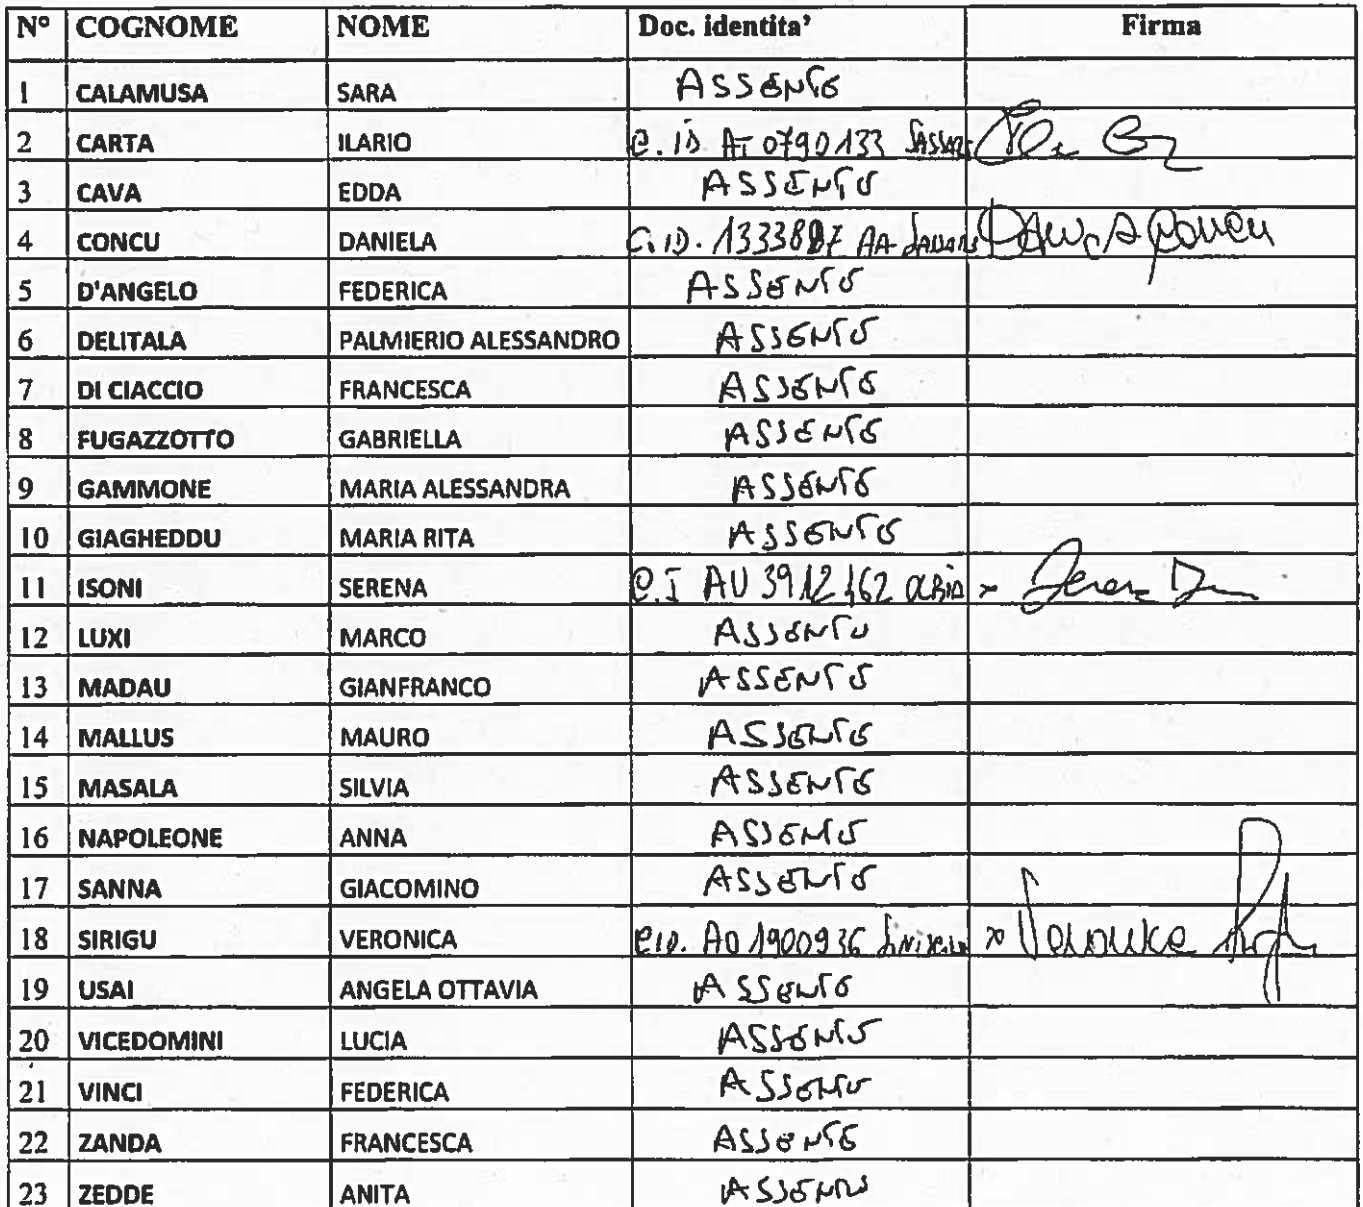 N° COGNOME NOME Doc. identita' Firma
1 CALAMUSA SARA ASSENTE
2 CARTA ILARIO C. ID. AT 0790133
3 CAVA EDDA ASSENTE
4 CONCU DANIELA C. ID. AA
5 D'ANGELO FEDERICA ASSENTE
6 DELITALA PALMIERIO ALESSANDRO ASSENTE
7 DI CIACCIO FRANCESCA ASSENTE
8 FUGAZZOTTO GABRIELLA ASSENTE
9 GAMMONE MARIA ALESSANDRA ASSENTE
10 GIAGHEDDU MARIA RITA ASSENTE
11 ISONI SERENA C.I AU 3912162 OLBIA x
12 LUXI MARCO ASSENTE
13 MADAU GIANFRANCO ASSENTE
14 MALLUS MAURO ASSENTE
15 MASALA SILVIA ASSENTE
16 NAPOLEONE ANNA ASSENTE
17 SANNA GIACOMINO ASSENTE
18 SIRIGU VERONICA C.ID. AO 1900936 x
19 USAI ANGELA OTTAVIA ASSENTE
20 VICEDOMINI LUCIA ASSENTE
21 VINCI FEDERICA ASSENTE
22 ZANDA FRANCESCA ASSENTE
23 ZEDDE ANITA ASSENTE